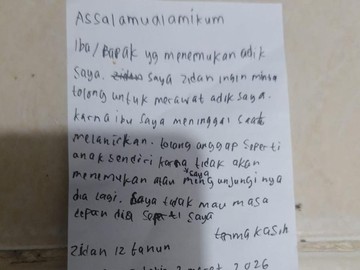 Assalamualaimkum
Iba/Bapak yg menemukan adik
saya. zidan saya zidan ingin minta
tolong untuk merawat adik saya.
karna ibu saya meninggal saat
melahirkan. tolong anggap seperti
anak sendiri karna tidak akan
menemukan atau saya mengunjungi nya
dia lagi. Saya tidak mau masa
depan dia seperti saya
terma kasih
Zidan 12 tahun
2026